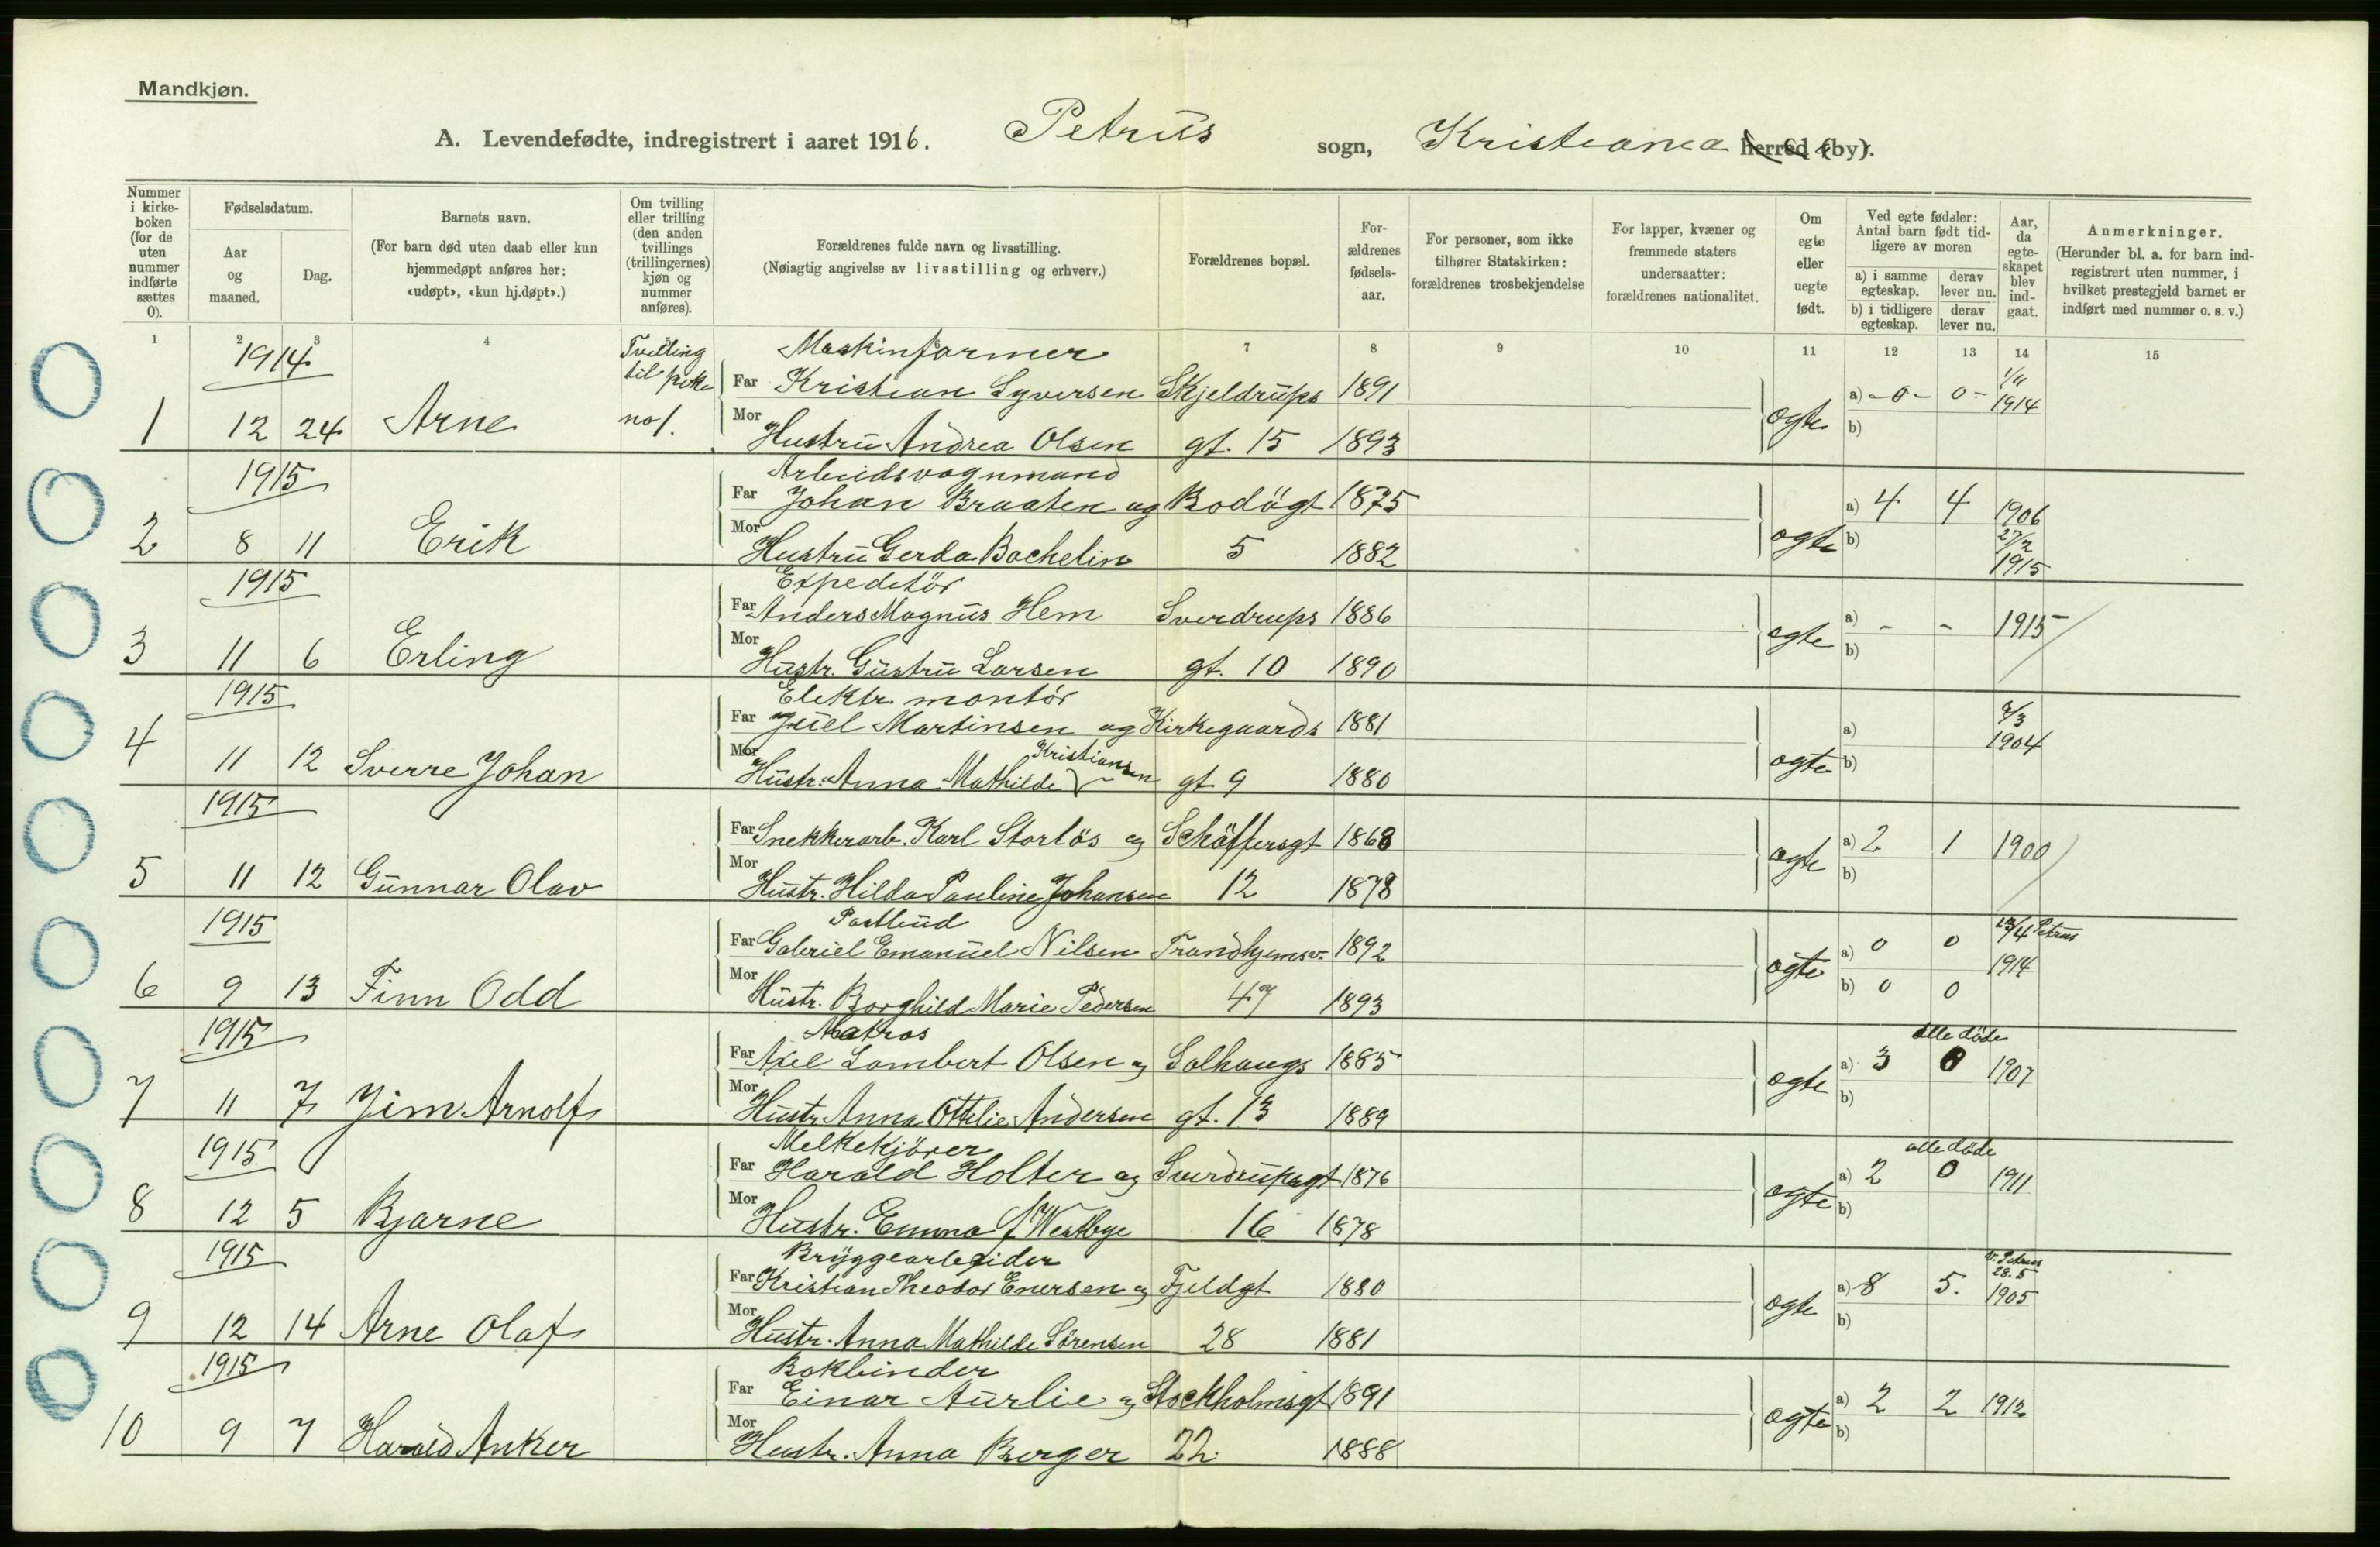 Mandkjøn.
A. Levendefødte, indregistrert i aaret 1916. Petrus sogn, Kristiania herred (by).
Nummer i kirke-boken (for de uten nummer indførte sættes 0).
Fødselsdatum.
Aar og maaned.
Dag.
Barnets navn.
(For barn død uten daab eller kun hjemmedøpt anføres her: «udøpt», «kun hj.døpt».)
Om tvilling eller trilling (den anden tvillings (trillingernes) kjøn og nummer anføres).
Forældrenes fulde navn og livsstilling.
(Nøiagtig angivelse av livsstilling og erhverv.)
Forældrenes bopæl.
For-ældrenes fødsels-aar.
For personer, som ikke tilhører Statskirken: forældrenes trosbekjendelse
For lapper, kvæner og fremmede staters undersaatter: forældrenes nationalitet.
Om egte eller uegte født.
Ved egte fødsler: Antal barn født tid-ligere av moren
a) i samme egteskap. derav lever nu.
b) i tidligere egteskap. derav lever nu.
Aar, da egte-skapet blev ind-gaat.
Anmerkninger.
(Herunder bl. a. for barn ind-registrert uten nummer, i hvilket prestegjeld barnet er indført med nummer o. s. v.)
1 2 3 4 7 8 9 10 11 12 13 14 15
1914 Tvilling til pike Maskinformer
Far Kristian Syversen Skjeldrups 1891 a) -0- 0- 1/11 1914
1 12 24 Arne no 1. Mor Hustru Andrea Olsen gt. 15 1893 egte b)
1915 Arbeidsvognmand
Far Johan Braaten og Bodögt 1875 a) 4 4 1906
2 8 11 Erik Mor Hustru Gerda Bachelin 5 1882 egte b)
27/2 1915
1915 Expeditör
Far Anders Magnus Hem Sverdrups 1886 a) - - 1915
3 11 6 Erling Mor Hustr. Gustru Larsen gt. 10 1890 egte b)
1915 Elektr. montör
Far Juel Martinsen og Kirkegaards 1881 a) /3 1904
4 11 12 Sverre Johan Mor Hustr. Anna Mathilde Kristiansen gt 9 1880 egte b)
1915
Far Snekkerarb. Karl Storlös og Schöffersgt 1868 a) 2 1 1900
5 11 12 Gunnar Olav Mor Hustr. Hilda Pauline Johansen 12 1878 egte b)
1915 Postbud
Far Gabriel Emanuel Nilsen Trondhjemsv. 1892 a) 0 0 /4 Petrus 1914
6 9 13 Finn Odd Mor Hustr. Borghild Marie Pedersen 47 1893 egte b) 0 0
1915 Matros alle döde
Far Axel Lambert Olsen og Solhaugs 1885 a) 3 0 1907
7 11 7 Jim Arnolf Mor Hustr. Anna Ottilie Andersen gt. 13 1889 egte b)
1915 Melkekjörer alle döde
Far Harald Holter og Sverdrupsgt 1876 a) 2 0 1911
8 12 5 Bjarne Mor Hustr. Emma f Westbye 16 1878 egte b)
1915 Bryggearbeider v. Petrus 28.5
Far Kristian Theodor Enersen og Fjeldgt 1880 a) 8 5. 1905
9 12 14 Arne Olaf Mor Hustr. Anna Mathilde Sörensen 28 1881 egte b)
1915 Bokbinder
Far Einar Aurlie og Stockholmsgt 1891 a) 2 2 1912
10 9 7 Harald Anker Mor Hustr. Anna Berger 22. 1888 egte b)